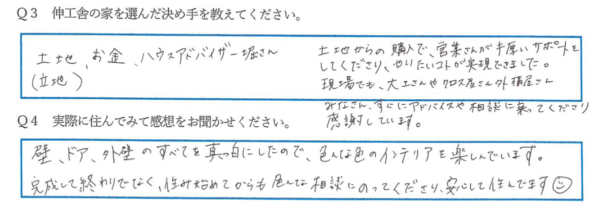 Q3 伸工舎の家を選んだ決め手を教えてください。
土地、お金、ハウスアドバイザー堀さん
(立地)
土地からの購入で、営業さんが手厚いサポートを
してくださり、やりたいコトが実現できました。
現場でも、大工さんやクロス屋さん外構屋さん
みなさん、すごくアドバイスや相談に乗ってくださり
感謝しています。
Q4 実際に住んでみて感想をお聞かせください。
壁、ドア、外壁のすべてを真っ白にしたので、色んな色のインテリアを楽しんでいます。
完成して終わりでなく、住み始めてからも色んな相談にのってくださり、安心して住んでます☺